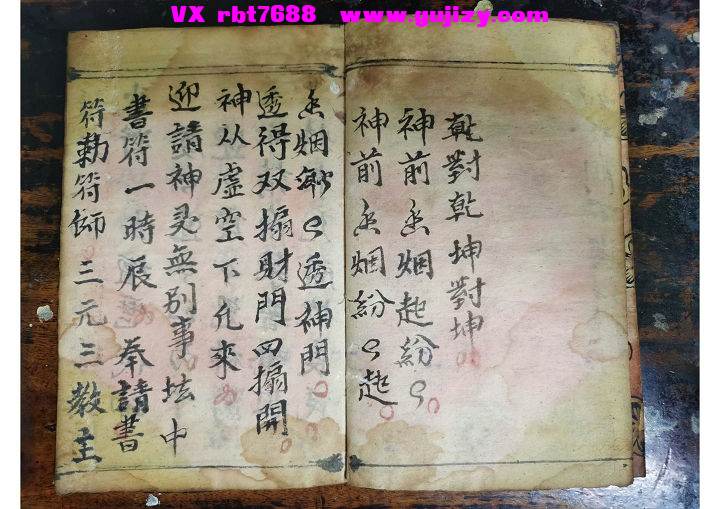 VX rbt7688 www.gujizy.com
乾對乾坤對坤
神前香烟起紛々
神前香烟紛々起
香烟渺々透神門
透得双搧財門四搧開
神从虚空下凡來
迎請神灵無别事坛中
書符一時辰奉請書
符勅符師三元三教主